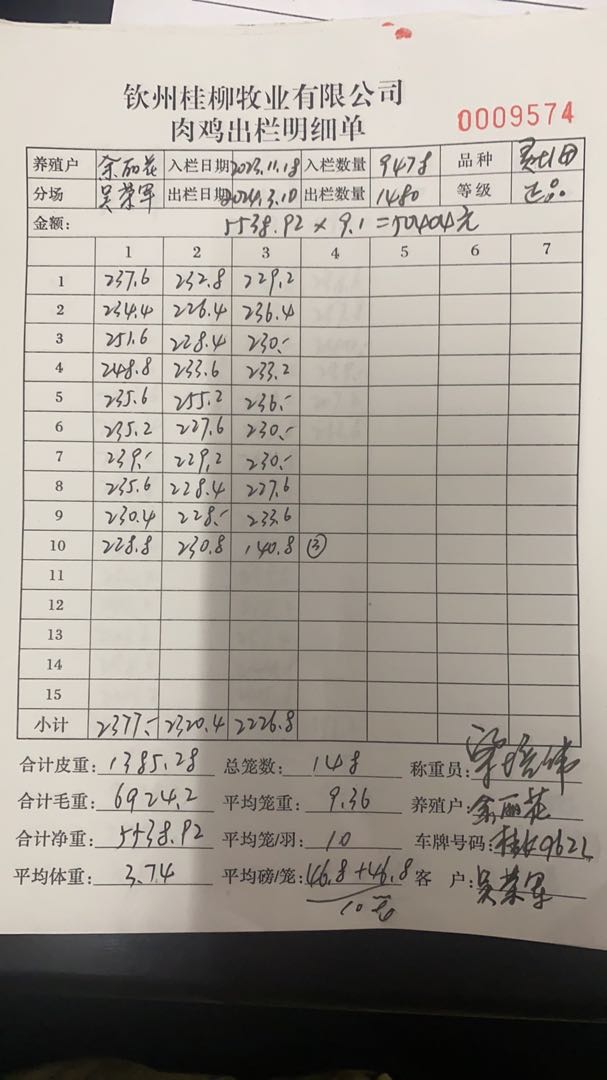 钦州桂柳牧业有限公司
肉鸡出栏明细单
0009574
养殖户 余丽花 入栏日期 2023.11.18 入栏数量 9478 品种
分场 吴荣军 出栏日期 2024.3.10 出栏数量 1480 等级 正品
金额: 5538.92 × 9.1 = 50404元
1 2 3 4 5 6 7
1 237.6 232.8 229.2
2 234.4 226.4 236.4
3 251.6 228.4 230.-
4 248.8 233.6 233.2
5 235.6 255.2 236.-
6 235.2 227.6 230.-
7 239.- 229.2 230.-
8 235.6 228.4 227.6
9 230.4 228.- 233.6
10 228.8 230.8 140.8 ③
11
12
13
14
15
小计 2377.- 2320.4 2226.8
合计皮重: 1385.28 总笼数: 148 称重员:
合计毛重: 6924.2 平均笼重: 9.36 养殖户: 余丽花
合计净重: 5538.92 平均笼/羽: 10 车牌号码:
平均体重: 3.74 平均磅/笼: 46.8+46.8 客 户: 吴荣军
10